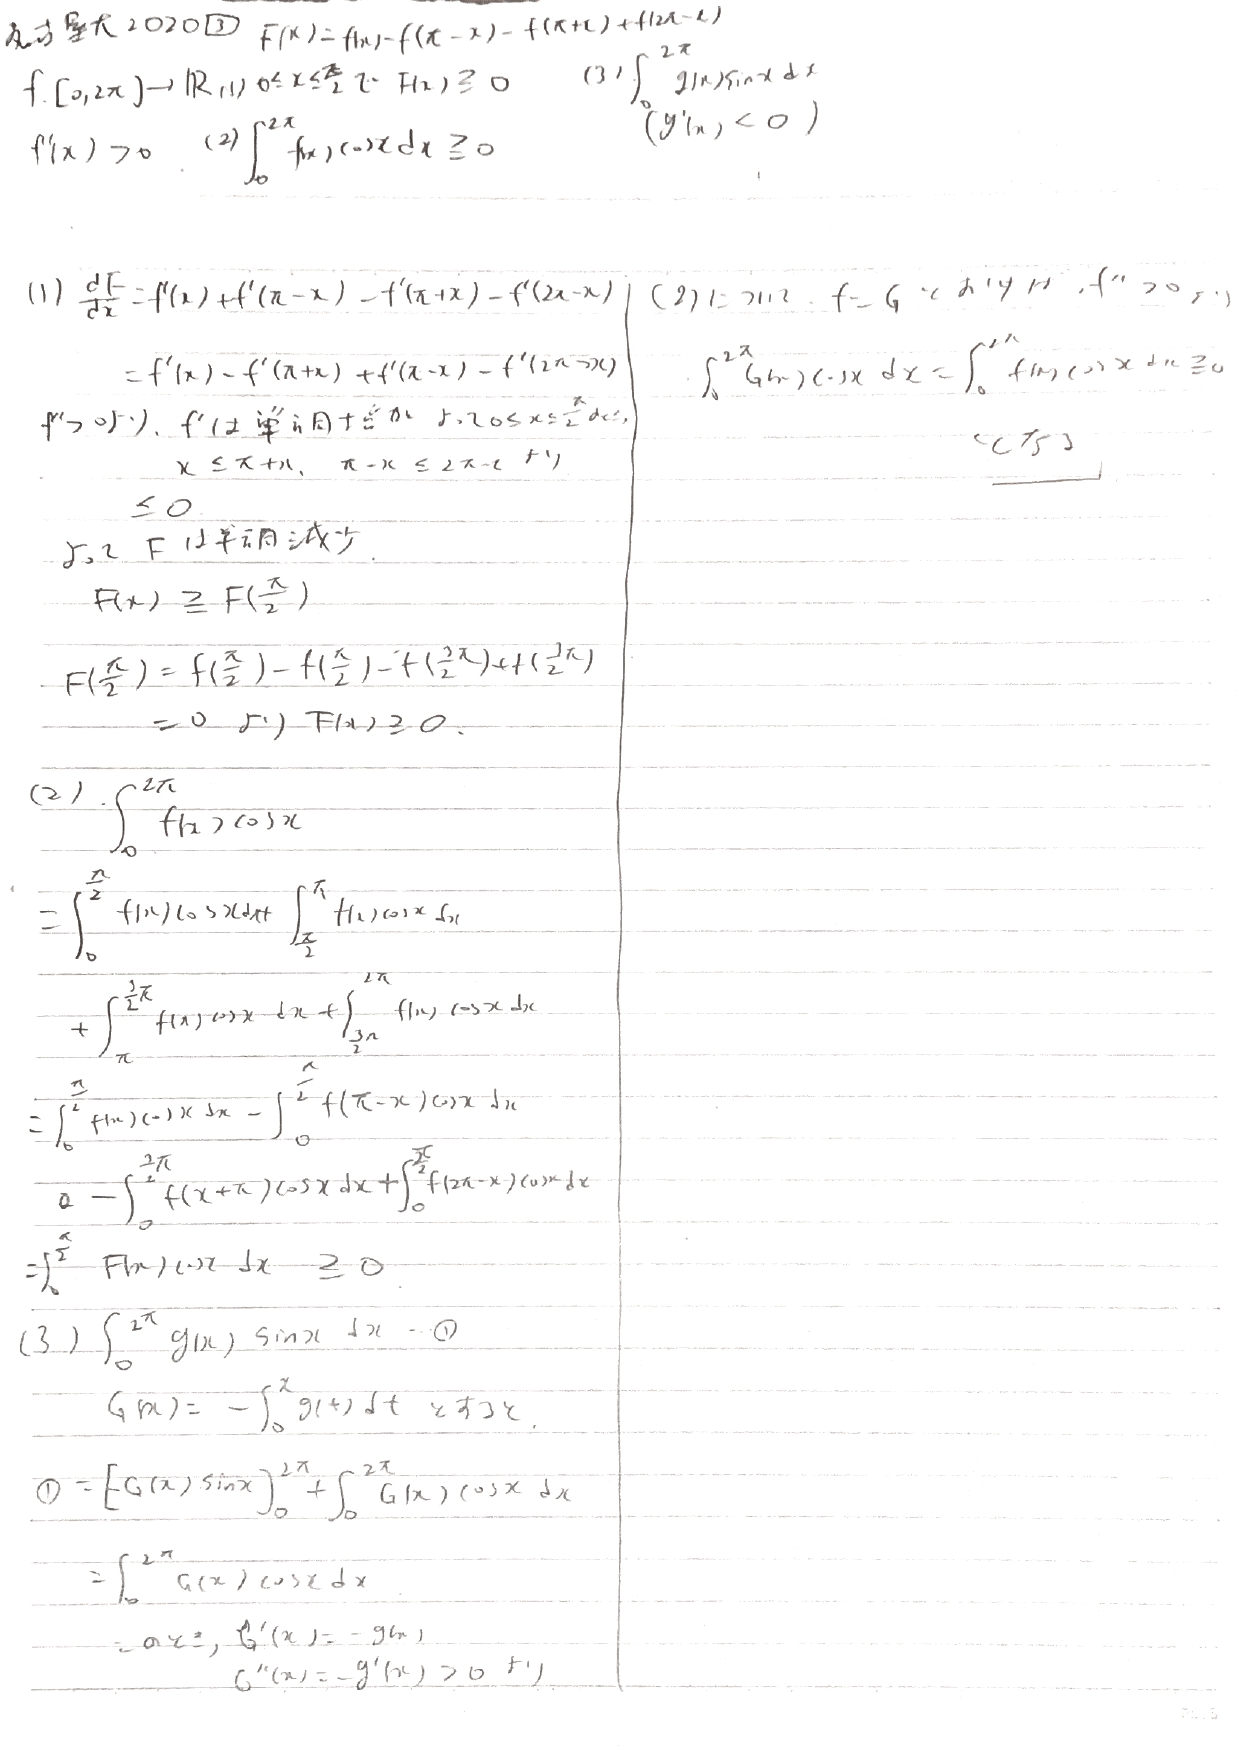 名古屋大2020 3 F(x)=f(x)-f(π-x)-f(π+x)+f(2π-x)
f:[0,2π]→ℝ (1) 0≤x≤π/2で F(x)≧0 (3) ∫_0^{2π} g(x)sinx dx
f''(x)>0 (2) ∫_0^{2π} f(x)cosx dx≧0 (g'(x)<0)
(1) dF/dx=f'(x)+f'(π-x)-f'(π+x)-f'(2π-x)
=f'(x)-f'(π+x)+f'(π-x)-f'(2π-x)
f''>0より、f'は単調増加 よって0≤x≤π/2では,
x≤π+x, π-x≤2π-xより
≤0
よって Fは単調減少.
F(x)≧F(π/2)
F(π/2)=f(π/2)-f(π/2)-f(3/2π)+f(3/2π)
=0より F(x)≧0.
(2) ∫_0^{2π} f(x)cosx
=∫_0^{π/2} f(x)cosxdx+∫_{π/2}^{π} f(x)cosx dx
+∫_π^{3/2π} f(x)cosx dx+∫_{3π/2}^{2π} f(x)cosx dx
=∫_0^{π/2} f(x)cosx dx-∫_0^{π/2} f(π-x)cosx dx
-∫_0^{3π/2} f(x+π)cosx dx+∫_0^{π/2} f(2π-x)cosx dx
=∫_0^{π/2} F(x)cosx dx ≧0
(3) ∫_0^{2π} g(x) sinx dx …①
G(x)=-∫_0^x g(t)dt とすると.
①=[-G(x)sinx]_0^{2π}+∫_0^{2π} G(x)cosx dx
=∫_0^{2π} G(x)cosx dx
このとき, G'(x)=-g(x)
G''(x)=-g'(x)>0より
(2)について. f=Gとおけば, f''>0より
∫_0^{2π} G(x)cosx dx=∫_0^{2π} f(x)cosx dx≧0
となる